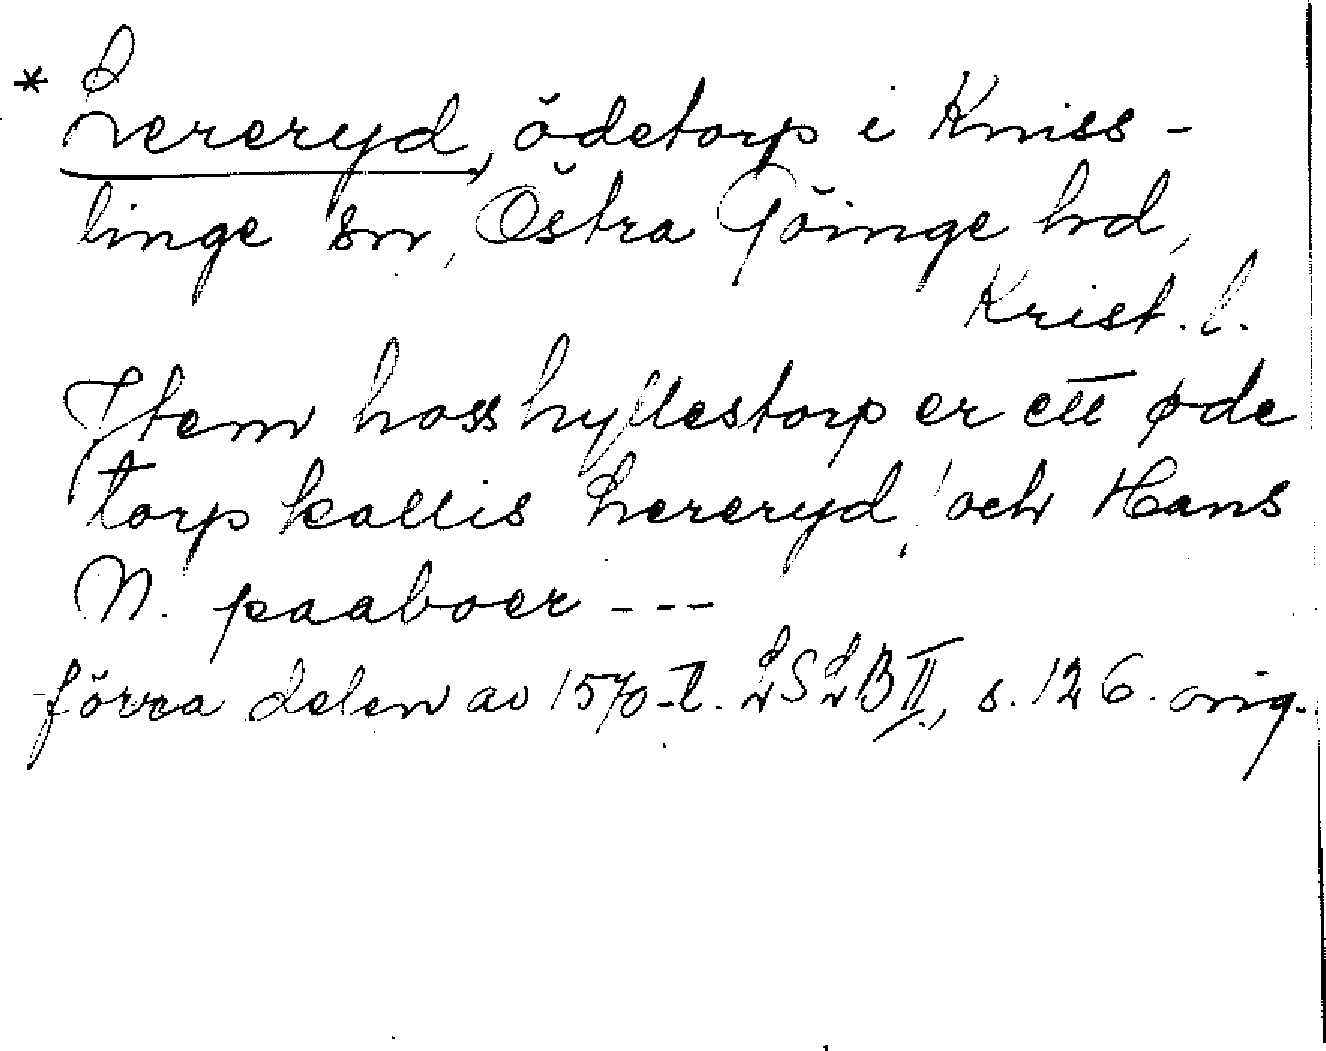 * Lereryd, ödetorp i Kniss-
linge sn, Östra Göinge hd,
Krist. l.
Jtem hoss hyllestorp er ett øde
torp kallis Lereryd, och Hans
N. paaboer ---
förra delen av 1570-t. LSLB II, s. 126. orig.